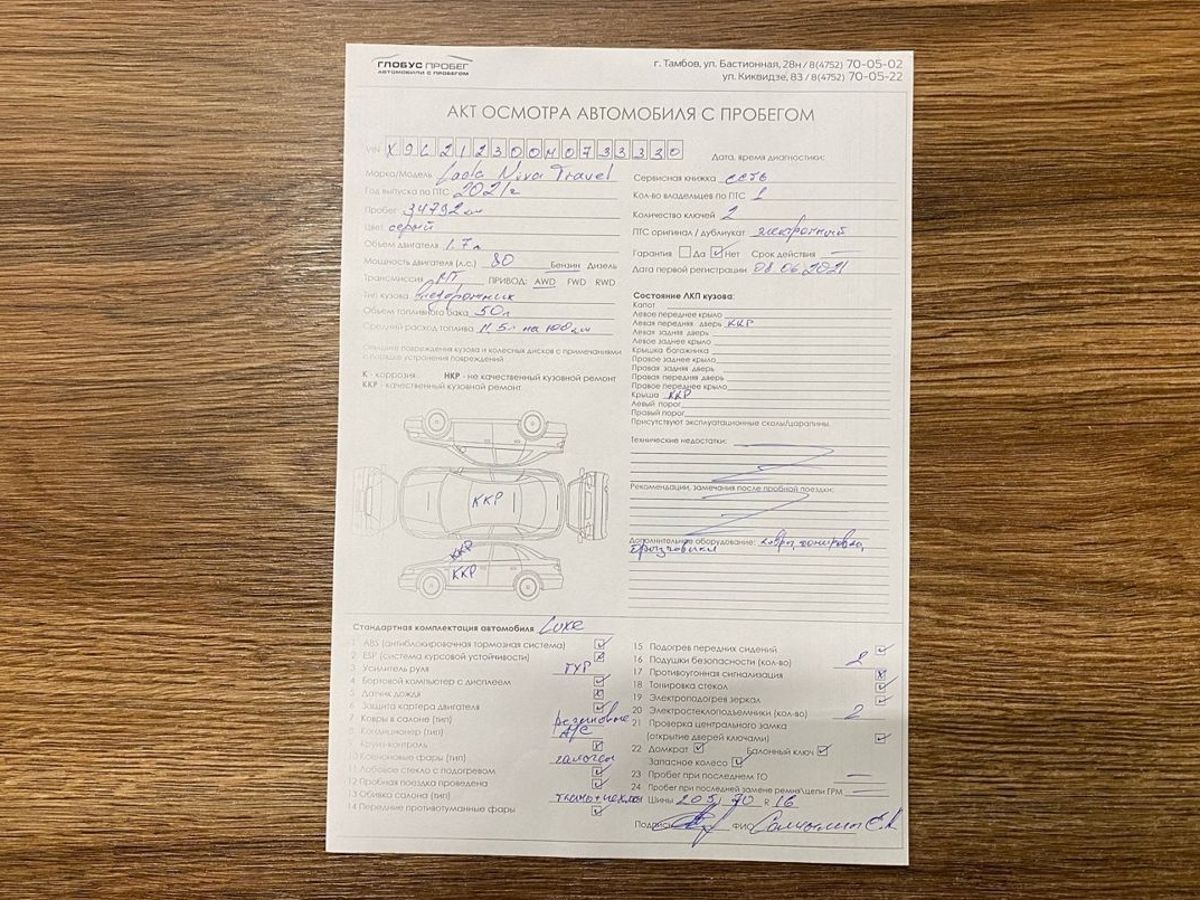 ГЛОБУС ПРОБЕГ
АВТОМОБИЛИ С ПРОБЕГОМ
г. Тамбов, ул. Бастионная, 28н / 8(4752) 70-05-02
ул. Киквидзе, 83 / 8(4752) 70-05-22
АКТ ОСМОТРА АВТОМОБИЛЯ С ПРОБЕГОМ
VIN X9L212300M0733330
Марка/Модель Lada Niva Travel
Год выпуска по ПТС 2021г
Пробег 34792 км
Цвет серый
Объем двигателя 1.7л
Мощность двигателя (л.с.) 80 Бензин Дизель
Трансмиссия ПРИВОД: AWD FWD RWD
Тип кузова внедорожник
Объем топливного бака 50л
Средний расход топлива 11,5л на 100км
повреждения кузова и колесных дисков с примечаниями
о порядке устранения повреждений
К - коррозия НКР - не качественный кузовной ремонт
ККР - качественный кузовной ремонт
ККР
ККР
ККР
Дата, время диагностики:
Сервисная книжка есть
Кол-во владельцев по ПТС 1
Количество ключей 2
ПТС оригинал / дубликат электронный
Гарантия Да Нет Срок действия —
Дата первой регистрации 08.06.2021
Состояние ЛКП кузова:
Капот
Левое переднее крыло
Левая передняя дверь ККР
Левая задняя дверь
Левое заднее крыло
Крышка багажника
Правое заднее крыло
Правая задняя дверь
Правая передняя дверь
Правое переднее крыло
Крыша ККР
Левый порог
Правый порог
Присутствуют эксплуатационные сколы/царапины.
Технические недостатки:
Рекомендации, замечания после пробной поездки:
Дополнительное оборудование: ковры, тонировка,
брызговики
Стандартная комплектация автомобиля Luxe
1 ABS (антиблокировочная тормозная система)
2 ESP (система курсовой устойчивости)
3 Усилитель руля ГУР
4 Бортовой компьютер с дисплеем
5 Датчик дождя
6 Защита картера двигателя
7 Ковры в салоне (тип) резиновые
8 Кондиционер (тип) A/C
9 Круиз-контроль
10 Ксеноновые фары (тип) галоген
11 Лобовое стекло с подогревом
12 Пробная поездка проведена
13 Обивка салона (тип) ткань+чехлы
14 Передние противотуманные фары
15 Подогрев передних сидений
16 Подушки безопасности (кол-во) 2
17 Противоугонная сигнализация
18 Тонировка стекол
19 Электроподогрев зеркал
20 Электростеклоподъемники (кол-во) 2
21 Проверка центрального замка
(открытие дверей ключами)
22 Домкрат Балонный ключ
Запасное колесо
23 Пробег при последнем ТО —
24 Пробег при последней замене ремня/цепи ГРМ —
Шины 205/70 R 16
Подпись ФИО